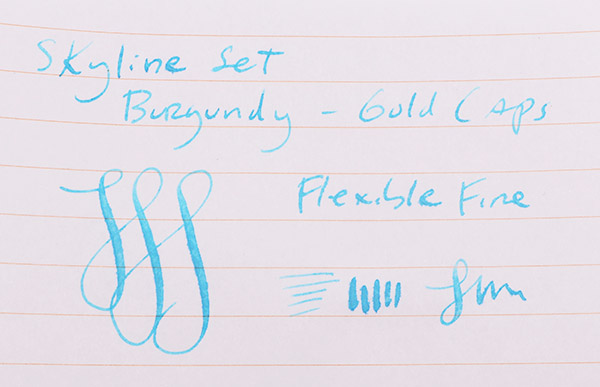 Skyline Set
Burgundy - Gold Caps
Flexible Fine